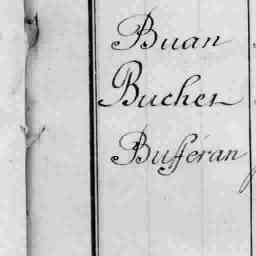 Buan
Bucher
Bufféran